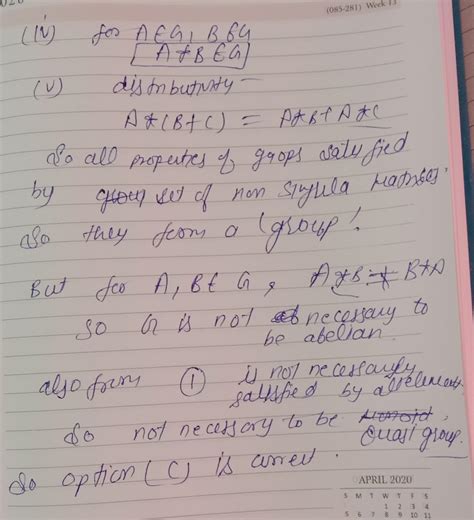 (085-281) Week 13
(iv) for A∈G, B∈G
[A*B∈G]
(v) distributivity -
A*(B+C) = A*B+A*C
So all properties of groops satisfied
by group set of non singula matrices
So they form a (group!
But for A, B∈ G, A*B ≠ B*A
so G is not necessary to
be abelian.
also from ① is not necessarily
satisfied by all elements
So not necessary to be Monoid,
Quasi group.
So option (C) is correct.
APRIL 2020
S M T W T F S
1 2 3 4
5 6 7 8 9 10 11